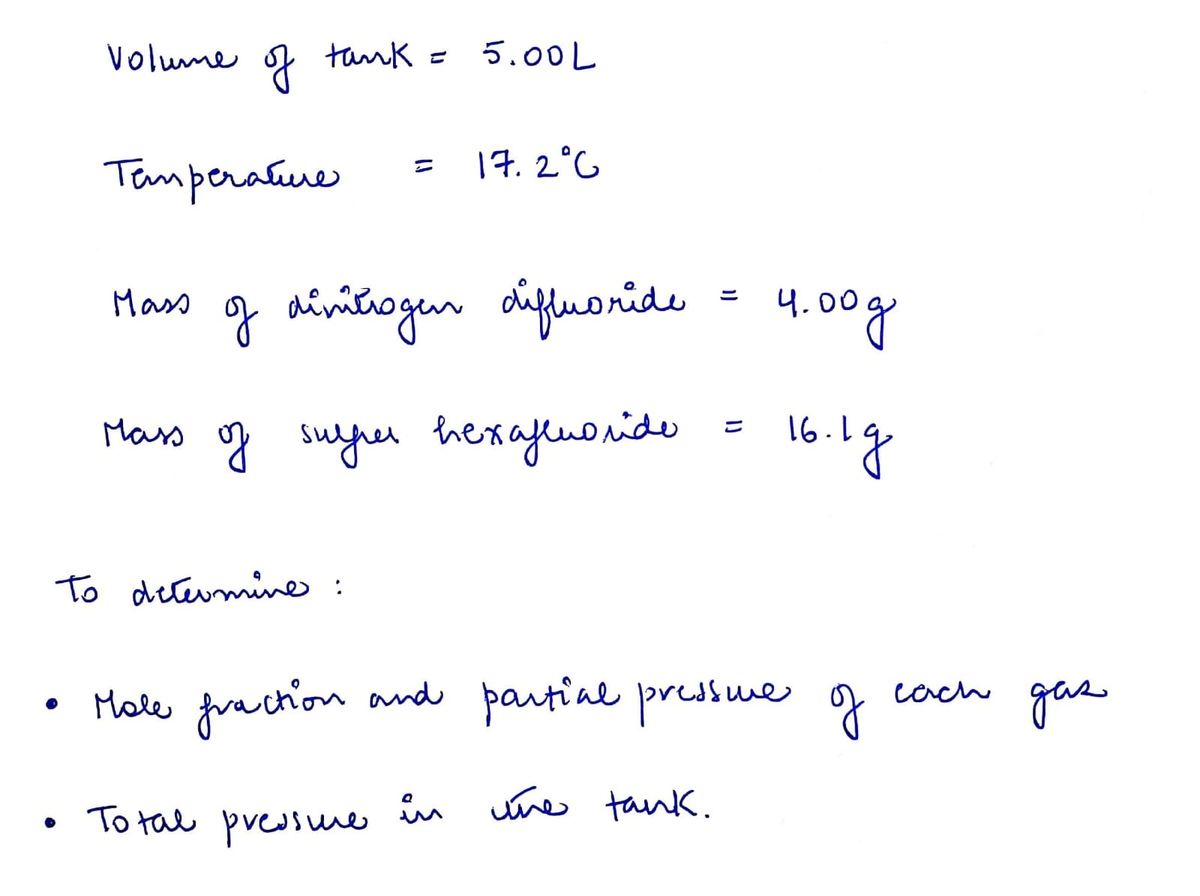 Volume of tank = 5.00L
Temperature = 17.2°C
Mass of dinitrogen difluoride = 4.00g
Mass of sulfur hexafluoride = 16.1g
To determine :
• Mole fraction and partial pressure of each gas
• Total pressure in the tank.